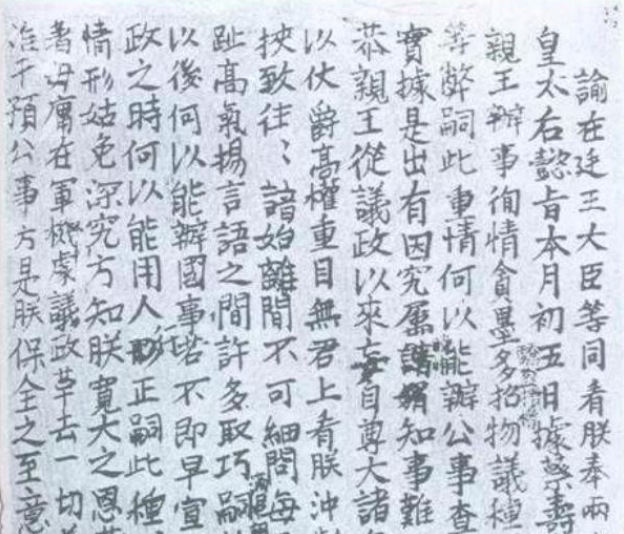 諭在廷王大臣等同看朕奉兩
皇太后懿旨本月初五日據蔡壽
親王辦事徇情貪墨多招物議種
等弊嗣此重情何以能辦公事查
實據是出有因究屬知事難
恭親王從議政以來妄自尊大諸
以仗爵高權重目無君上看朕沖
挾致往〻諳始離間不可細問每
趾高氣揚言語之間許多取巧嗣
以後何以能辦國事若不即早宣
政之時何以能用人行正嗣此種
情形姑免深究方知朕寬大之恩
著毋庸在軍機處議政革去一切
治干預公事方是朕保全之至意